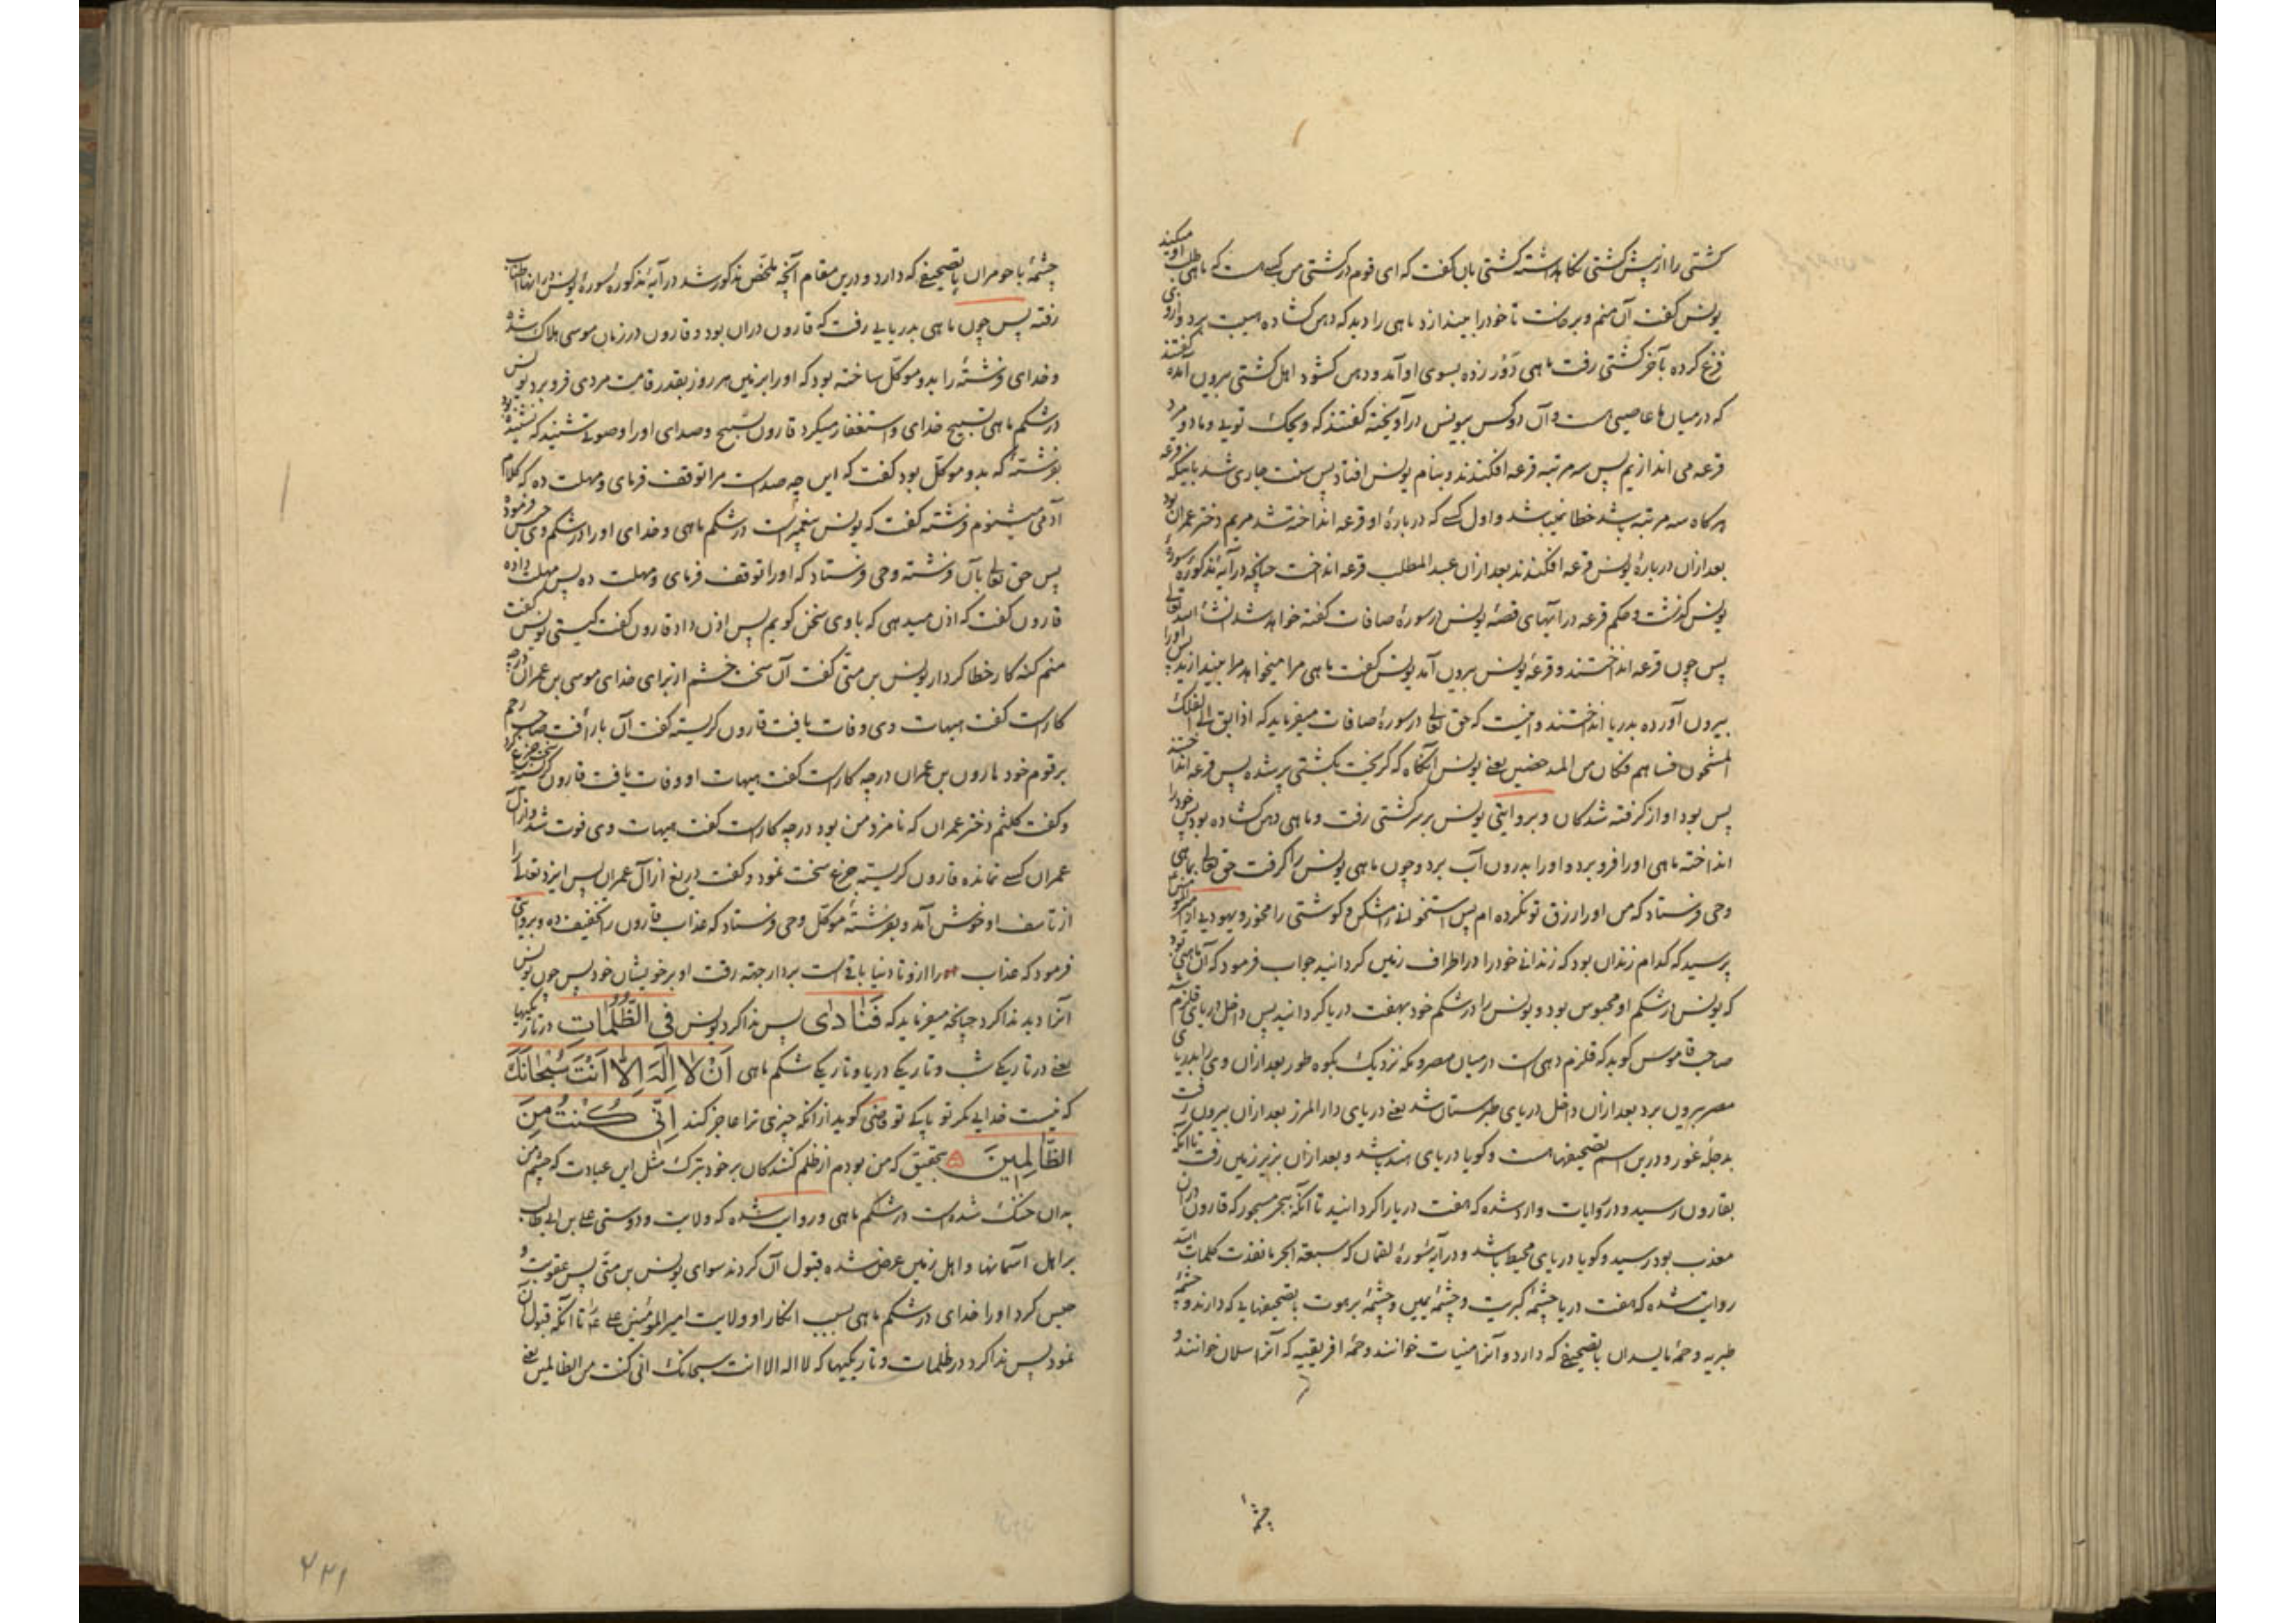 کشتی را از پیش کشتی نگاه داشته کشتی بان گفت که ای قوم در کشتی من کسی است که ماهی طلب او میکند
یونس گفت آن منم و برخاست تا خود را بیندازد ماهی را دید که دهن کشاده هیبت برد و از وی
فزع کرده بآخر کشتی رفت ماهی دور زده بسوی او آمد و دهن کشود اهل کشتی بیرون آمده گفتند
که در میان ما عاصیی است و آن دو کس بیونس درآویخته گفتند که ویحک تویی و ما دو مرد
قرعه می اندازیم پس سه مرتبه قرعه افکندند و بنام یونس افتاد پس سنت جاری شد باینکه قرعه
هرگاه سه مرتبه باشد خطا نمیباشد و اول کسی که درباره او قرعه انداخته شد مریم دختر عمران بود
بعد ازان درباره یونس قرعه افکندند بعد ازان عبد المطلب قرعه انداخت چنانچه در آیه مذکوره سوره
یونس گذشت و حکم قرعه در آیتهای قصه یونس در سوره صافات گفته خواهد شد انشاء الله تعالی
پس چون قرعه انداختند و قرعه یونس بیرون آمد یونس گفت ماهی مرا میخواهد مرا بیندازید پس اورا
بیرون آورده بدریا انداختند و اینست که حق تعالی در سوره صافات میفرماید که اذ ابق الی الفلک
المشحون فساهم فکان من المدحضین یعنی یونس آنگاه که گریخت بکشتی پر شده پس قرعه انداختند
پس بود او از گرفته شدگان و بروایتی یونس بر سر کشتی رفت و ماهی دهن کشاده بود پس خود را
انداخته ماهی اورا فرو برد و اورا بدرون آب برد و چون ماهی یونس را گرفت حق تعالی بماهی
وحی فرستاد که من اورا رزق تو نکرده ام پس استخوانی را مشکن و گوشتی را مخور و یهودیی از امیرالمؤمنین
پرسید که کدام زندان بود که زندانی خود را در اطراف زمین گردانید جواب فرمود که آن ماهی بود
که یونس در شکم او محبوس بود و یونس را در شکم خود بهفت دریا گردانید پس داخل دریای قلزم شد
صاحب قاموس گوید که قلزم دهی است در میان مصر و مکه نزدیک بکوه طور بعد ازان وی را بدریای
مصر بیرون برد بعد ازان داخل دریای طبرستان شد یعنی دریای دار المرز بعد ازان بیرون رفت
بدجله غور و درین اسم تصحیفها است و گویا دریای هند باشد و بعد ازان بزیر زمین رفت تا آنکه
بقارون رسید و در روایات وارد شده که هفت دریا را گردانید تا آنکه ببحر مسجور که قارون دران
معذب بود رسید و گویا دریای محیط باشد و در آیه سوره لقمان که سبعة ابحر ما نفدت کلمات الله
روایت شده که هفت دریا چشمه کبریت و چشمه یمین و چشمه برهوت با تصحیفهایی که دارند و چشمه
طبریه و حمه ماسیدان با تصحیفی که دارد و آنرا منیات خوانند و حمه افریقیه که آنرا سلان خوانند و
چشمه
چشمه باحومران با تصحیفی که دارد و درین مقام آنچه ملخص مذکور شد در آیه مذکوره سوره یونس در انها اطناب
رفته پس چون ماهی بدریایی رفت که قارون دران بود و قارون در زمان موسی هلاک شده
و خدای فرشته را بدو موکل ساخته بود که اورا بزمین هر روز بقدر قامت مردی فرو برد یونس
در شکم ماهی تسبیح خدای و استغفار میکرد قارون تسبیح و صدای اورا و صوتی شنید که نشنیده بود
بفرشته که بدو موکل بود گفت که این چه صداست مرا توقف فرمای و مهلت ده که کلام
آدمی میشنوم فرشته گفت که یونس پیغمبر است در شکم ماهی و خدای اورا در شکم وی حبس فرموده
پس حق تعالی بآن فرشته وحی فرستاد که اورا توقف فرمای و مهلت ده پس مهلت داده
قارون گفت که اذن میدهی که با وی سخن گویم پس اذن داد قارون گفت کیستی یونس گفت
منم گنه کار خطا کردار یونس بن متی گفت آن سخت خشم از برای خدای موسی بن عمران در چه
کار است گفت هیهات وی وفات یافت قارون گریسته گفت آن با رأفت صاحب رحم
بر قوم خود هارون بن عمران در چه کار است گفت هیهات او وفات یافت قارون گریسته سخت جزع کرد
و گفت کلثم دختر عمران که نامزد من بود در چه کار است گفت هیهات وی فوت شد و از آل
عمران کسی نمانده قارون گریسته جزع سخت نمود و گفت دریغ از آل عمران پس ایزد تعالی را
از تأسف او خوش آمد و بفرشته موکل وحی فرستاد که عذاب قارون را تخفیف ده و بروایتی
فرمود که عذاب را از و تا دنیا باقی است بردار جهة رقت او بر خویشان خود پس چون یونس
آنرا دید ندا کرد چنانچه میفرماید که فَنَادٰی پس ندا کرد یونس فِی الظُّلُمَاتِ در تاریکیها
یعنی در تاریکی شب و تاریکی دریا و تاریکی شکم ماهی اَنْ لَا اِلٰهَ اِلَّا اَنْتَ سُبْحَانَكَ
که نیست خدایی مگر تو پاکی تو گوید از آنکه چیزی ترا عاجز کند اِنِّی كُنْتُ مِنَ
الظَّالِمِینَ بتحقیق که من بودم از ظلم کنندگان بر خود بترک مثل این عبادت که چشم من
بدان خنک شده است در شکم ماهی و روایت شده که ولایت و دوستی علی بن ابی طالب
بر اهل آسمانها و اهل زمین عرض شده قبول آن کردند سوای یونس بن متی پس عقوبت و
حبس کرد اورا خدای در شکم ماهی بسبب انکار او ولایت امیر المؤمنین علی ع را تا آنکه قبول آن
نمود پس ندا کرد در ظلمات و تاریکیها که لا اله الا انت سبحانک انی کنت من الظالمین یعنی
۲۲۱